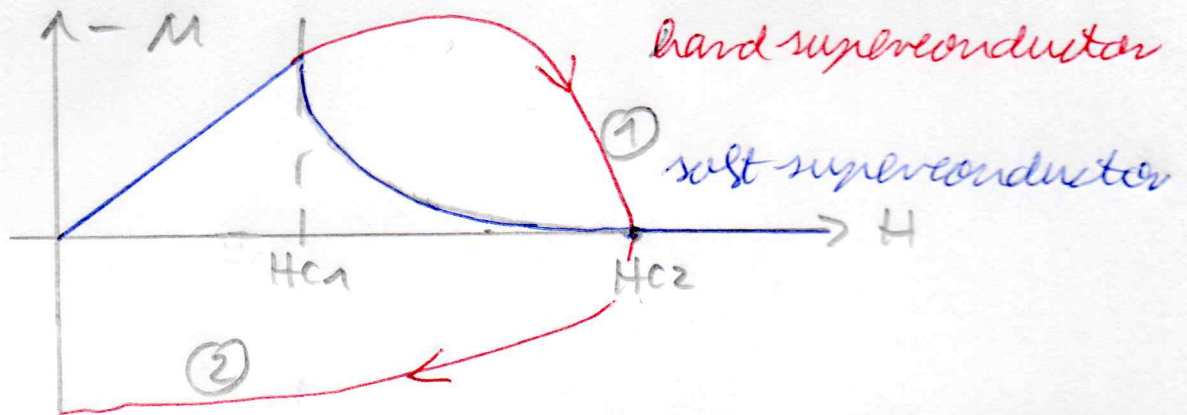 - M
hard superconductor
①
soft superconductor
H
Hc1
Hc2
②